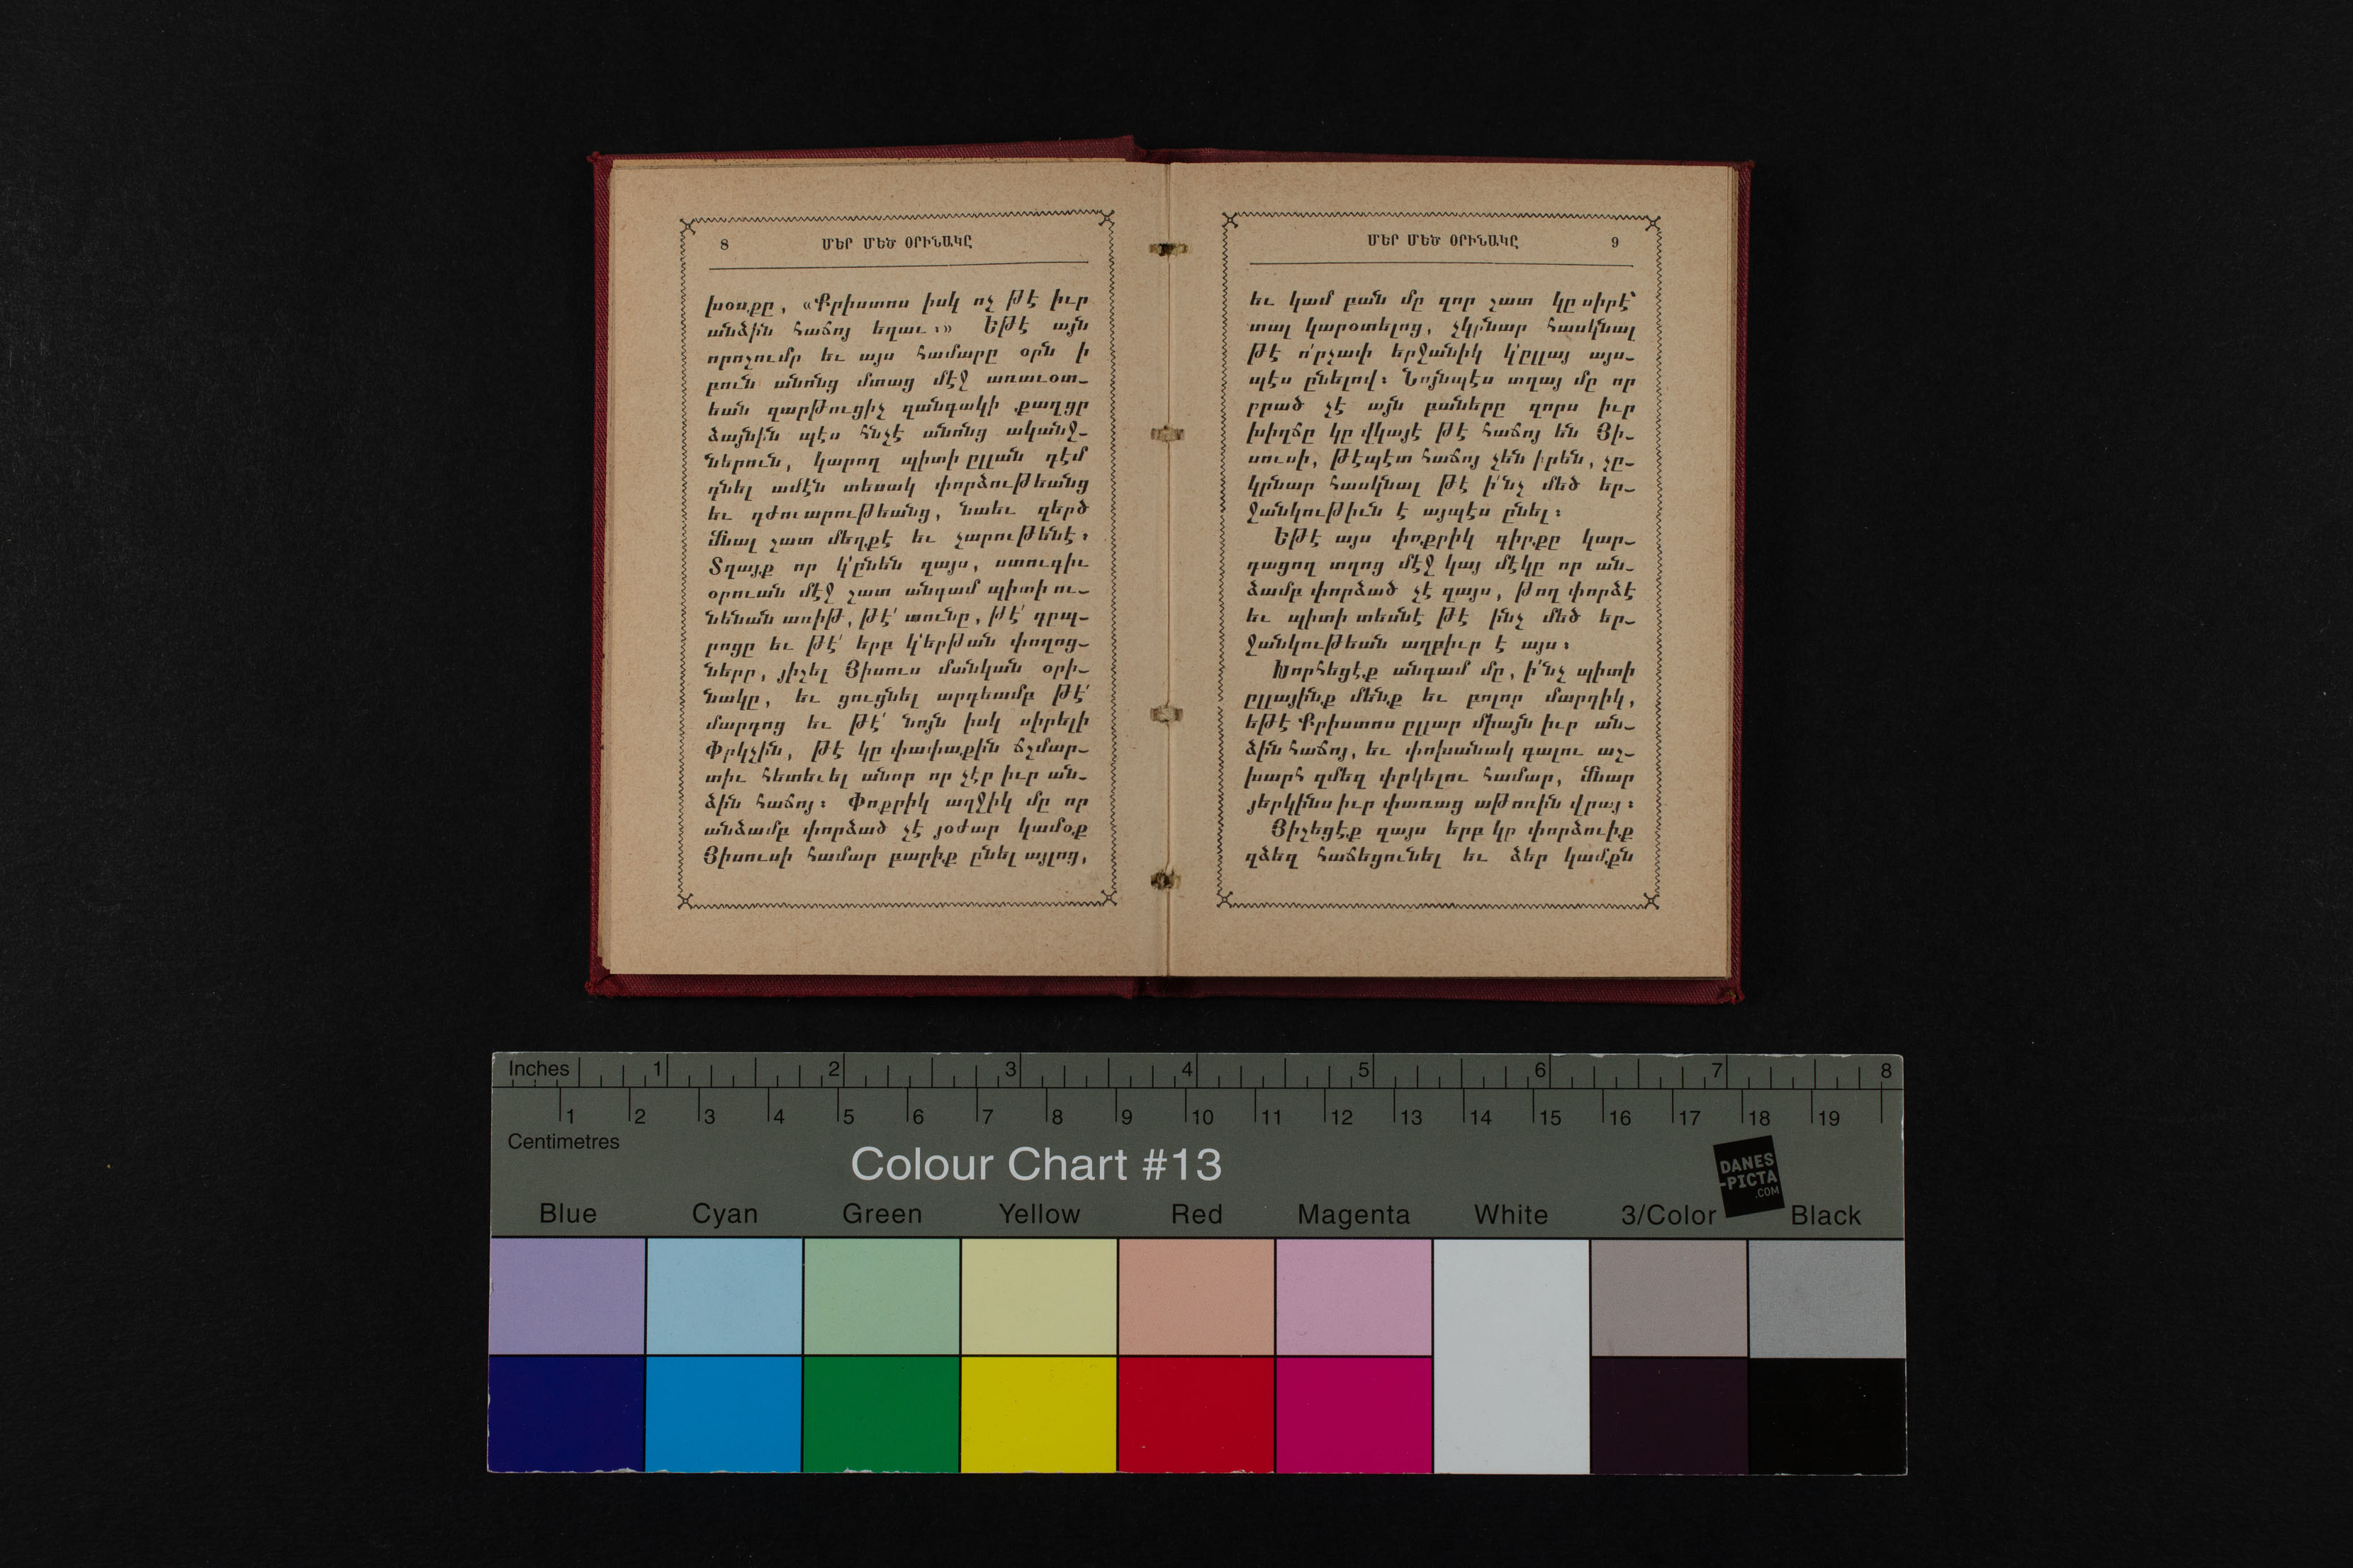 8 ՄԵՐ ՄԵԾ ՕՐԻՆԱԿԸ
խօսքը, «Քրիստոս իսկ ոչ թէ իւր
անձին հաճոյ եղաւ։» Եթէ այն
որոշումը եւ այս համարը օրն ի
բուն անոնց մտաց մէջ առաւօտ-
եան զարթուցիչ զանգակի քաղցր
ձայնին պէս հնչէ անոնց ականջ-
ներուն, կարող պիտի ըլլան դէմ
դնել ամէն տեսակ փորձութեանց
եւ դժուարութեանց, նաեւ զերծ
մնալ շատ մեղքէ եւ չարութենէ։
Տղայք որ կ'ընեն զայս, ստուգիւ
օրուան մէջ շատ անգամ պիտի ու-
նենան առիթ, թէ՛ տունը, թէ՛ դըպ-
րոցը եւ թէ՛ երբ կ'երթան փողոց-
ները, յիշել Յիսուս մանկան օրի-
նակը, եւ ցուցնել արդեամբ թէ՛
մարդոց եւ թէ՛ նոյն իսկ սիրելի
Փրկչին, թէ կը փափաքին ճշմար-
տիւ հետեւել անոր որ չէր իւր ան-
ձին հաճոյ։ Փոքրիկ աղջիկ մը որ
անձամբ փորձած չէ յօժար կամօք
Յիսուսի համար բարիք ընել այլոց,
ՄԵՐ ՄԵԾ ՕՐԻՆԱԿԸ 9
եւ կամ բան մը զոր շատ կը սիրէ՝
տալ կարօտելոց, չկրնար հասկնալ
թէ ո՛րչափ երջանիկ կ'ըլլայ այս-
պէս ընելով։ Նոյնպէս տղայ մը որ
ըրած չէ այն բաները զորս իւր
խիղճը կը վկայէ թէ հաճոյ են Յի-
սուսի, թէպէտ հաճոյ չեն իրեն, չը-
կրնար հասկնալ թէ ի՛նչ մեծ եր-
ջանկութիւն է այսպէս ընել։
Եթէ այս փոքրիկ գիրքը կար-
դացող տղոց մէջ կայ մէկը որ ան-
ձամբ փորձած չէ զայս, թող փորձէ
եւ պիտի տեսնէ թէ ինչ մեծ եր-
ջանկութեան աղբիւր է այս։
Խորհեցէք անգամ մը, ի՛նչ պիտի
ըլլայինք մենք եւ բոլոր մարդիկ,
եթէ Քրիստոս ըլլար միայն իւր ան-
ձին հաճոյ, եւ փոխանակ գալու աշ-
խարհ զմեզ փրկելու համար, մնար
յերկինս իւր փառաց աթոռին վրայ։
Յիշեցէք զայս երբ կը փորձուիք
զձեզ հաճեցունել եւ ձեր կամքն
Inches 1 2 3 4 5 6 7 8
1 2 3 4 5 6 7 8 9 10 11 12 13 14 15 16 17 18 19
Centimetres
Colour Chart #13
DANES
-PICTA
.COM
Blue Cyan Green Yellow Red Magenta White 3/Color Black